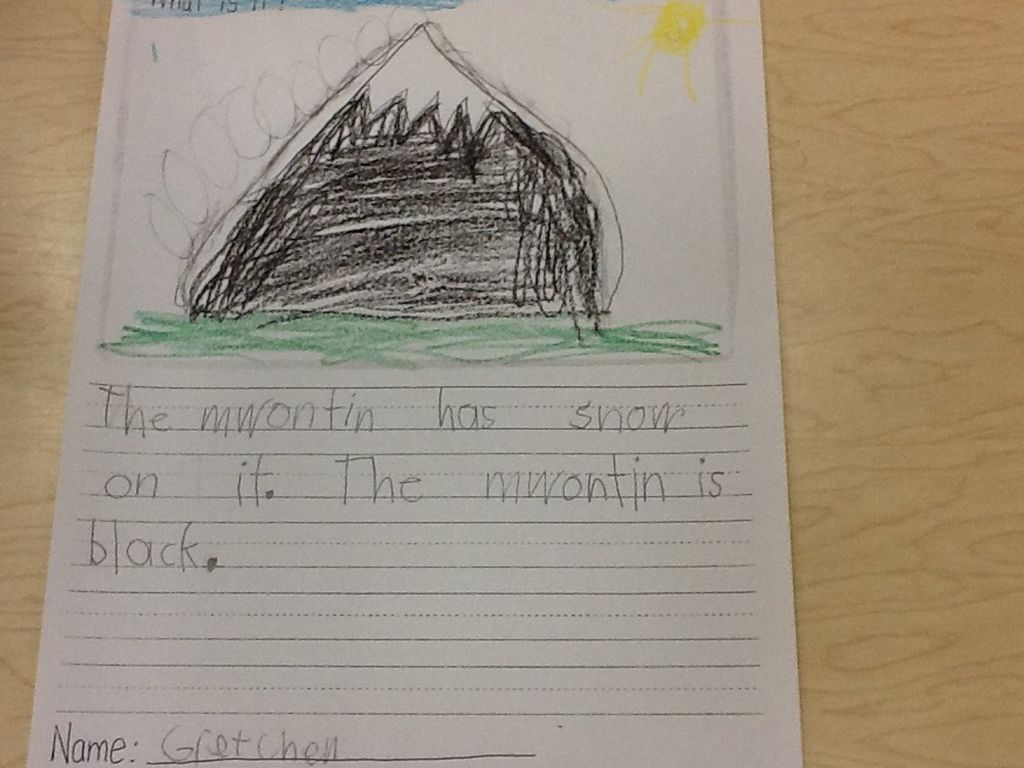 What is it?
The mwontin has snow
on it. The mwontin is
black.
Name: Gretchen